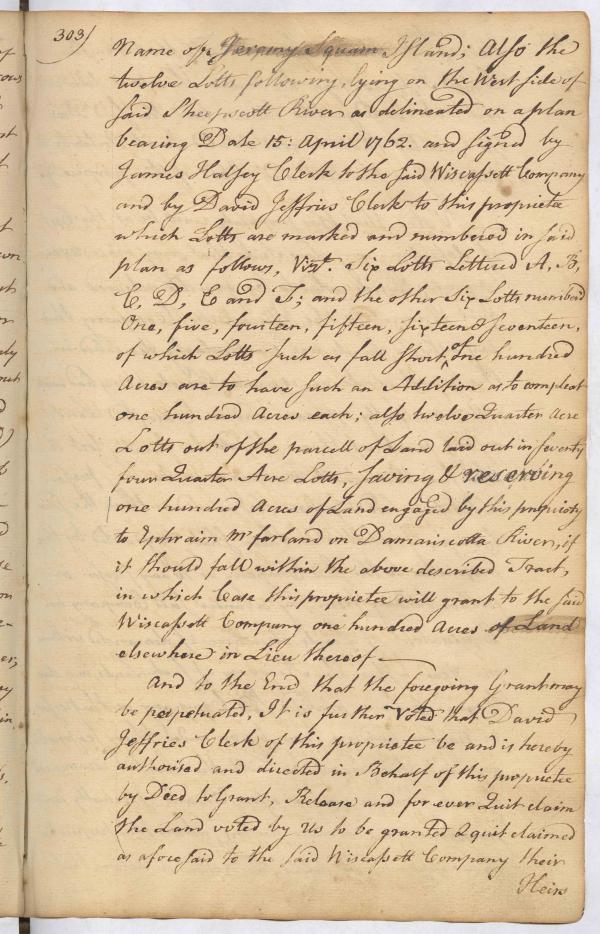 303)
Name of Jeremy Squam Island; Also the
twelve Lotts following, lying on the West side of
said Sheepscott River as delineated on a plan
bearing Date 15: April 1762. and signed by
James Halsey Clerk to the said Wiscassett Company
and by David Jeffries Clerk to this propriete
which Lotts are marked and numbered in said
plan as follows, Vizt. Six Lotts Lettered A, B,
C, D, E and F; and the other Six Lotts numberd
One, five, fourteen, fifteen, sixteen & seventeen,
of which Lotts such as fall short of One hundred
Acres are to have such an Addition as to compleat
one hundred Acres each; also twelve Quarter Acre
Lotts out of the parcell of Land laid out in seventy
four Quarter Acre Lotts, saving & reserving
one hundred Acres of Land engaged by this propriety
to Ephraim McFarland on Damariscotta River, if
it should fall within the above described Tract,
in which Case this proprietee will grant to the said
Wiscassett Company one hundred Acres of Land
elsewhere in Lieu thereof
And to the End that the foregoing Grant may
be perpetuated, It is further Voted that David
Jeffries Clerk of this proprietee be and is hereby
authorised and directed in Behalf of this proprietee
by Deed to Grant, Release and for ever Quit claim
the Land voted by Us to be granted & quit claimed
as aforesaid to the said Wiscassett Company their
Heirs